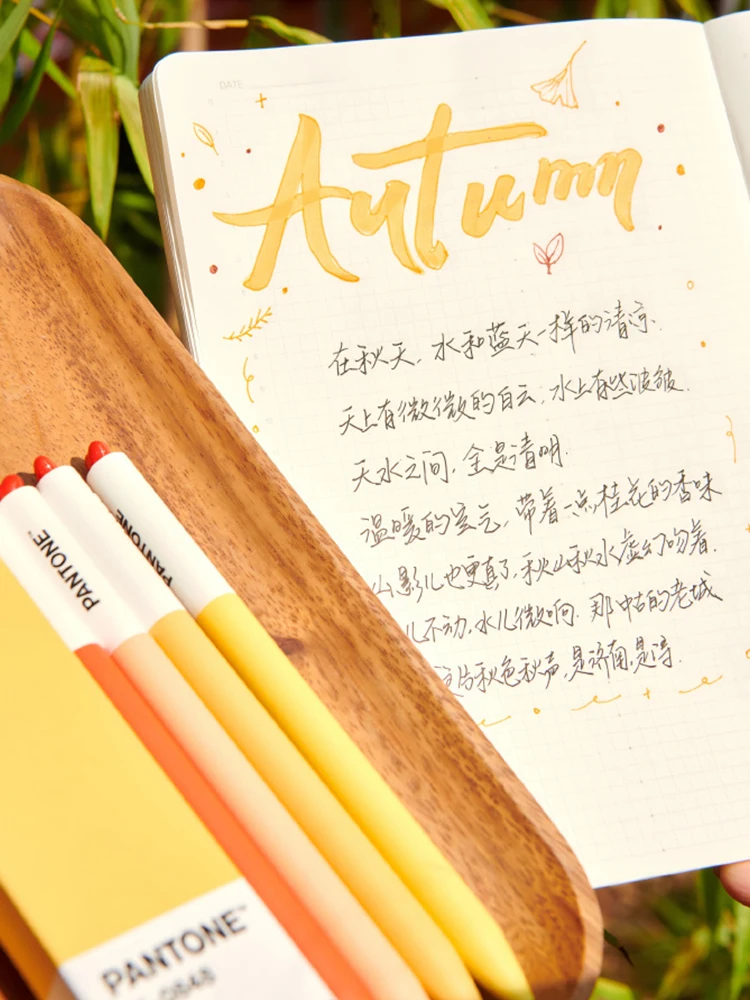 DATE
Autumn
在秋天，水和蓝天一样的清凉.
天上有微微的白云，水上有些波皱.
天水之间，全是清明.
温暖的空气，带着一点桂花的香味
山影儿也更真了，秋山秋水虚幻吻着.
儿不动，水儿微响. 那中古的老城
这片秋色秋声，是济南，是诗.
PANTONE
PANTONE
PANTONE™